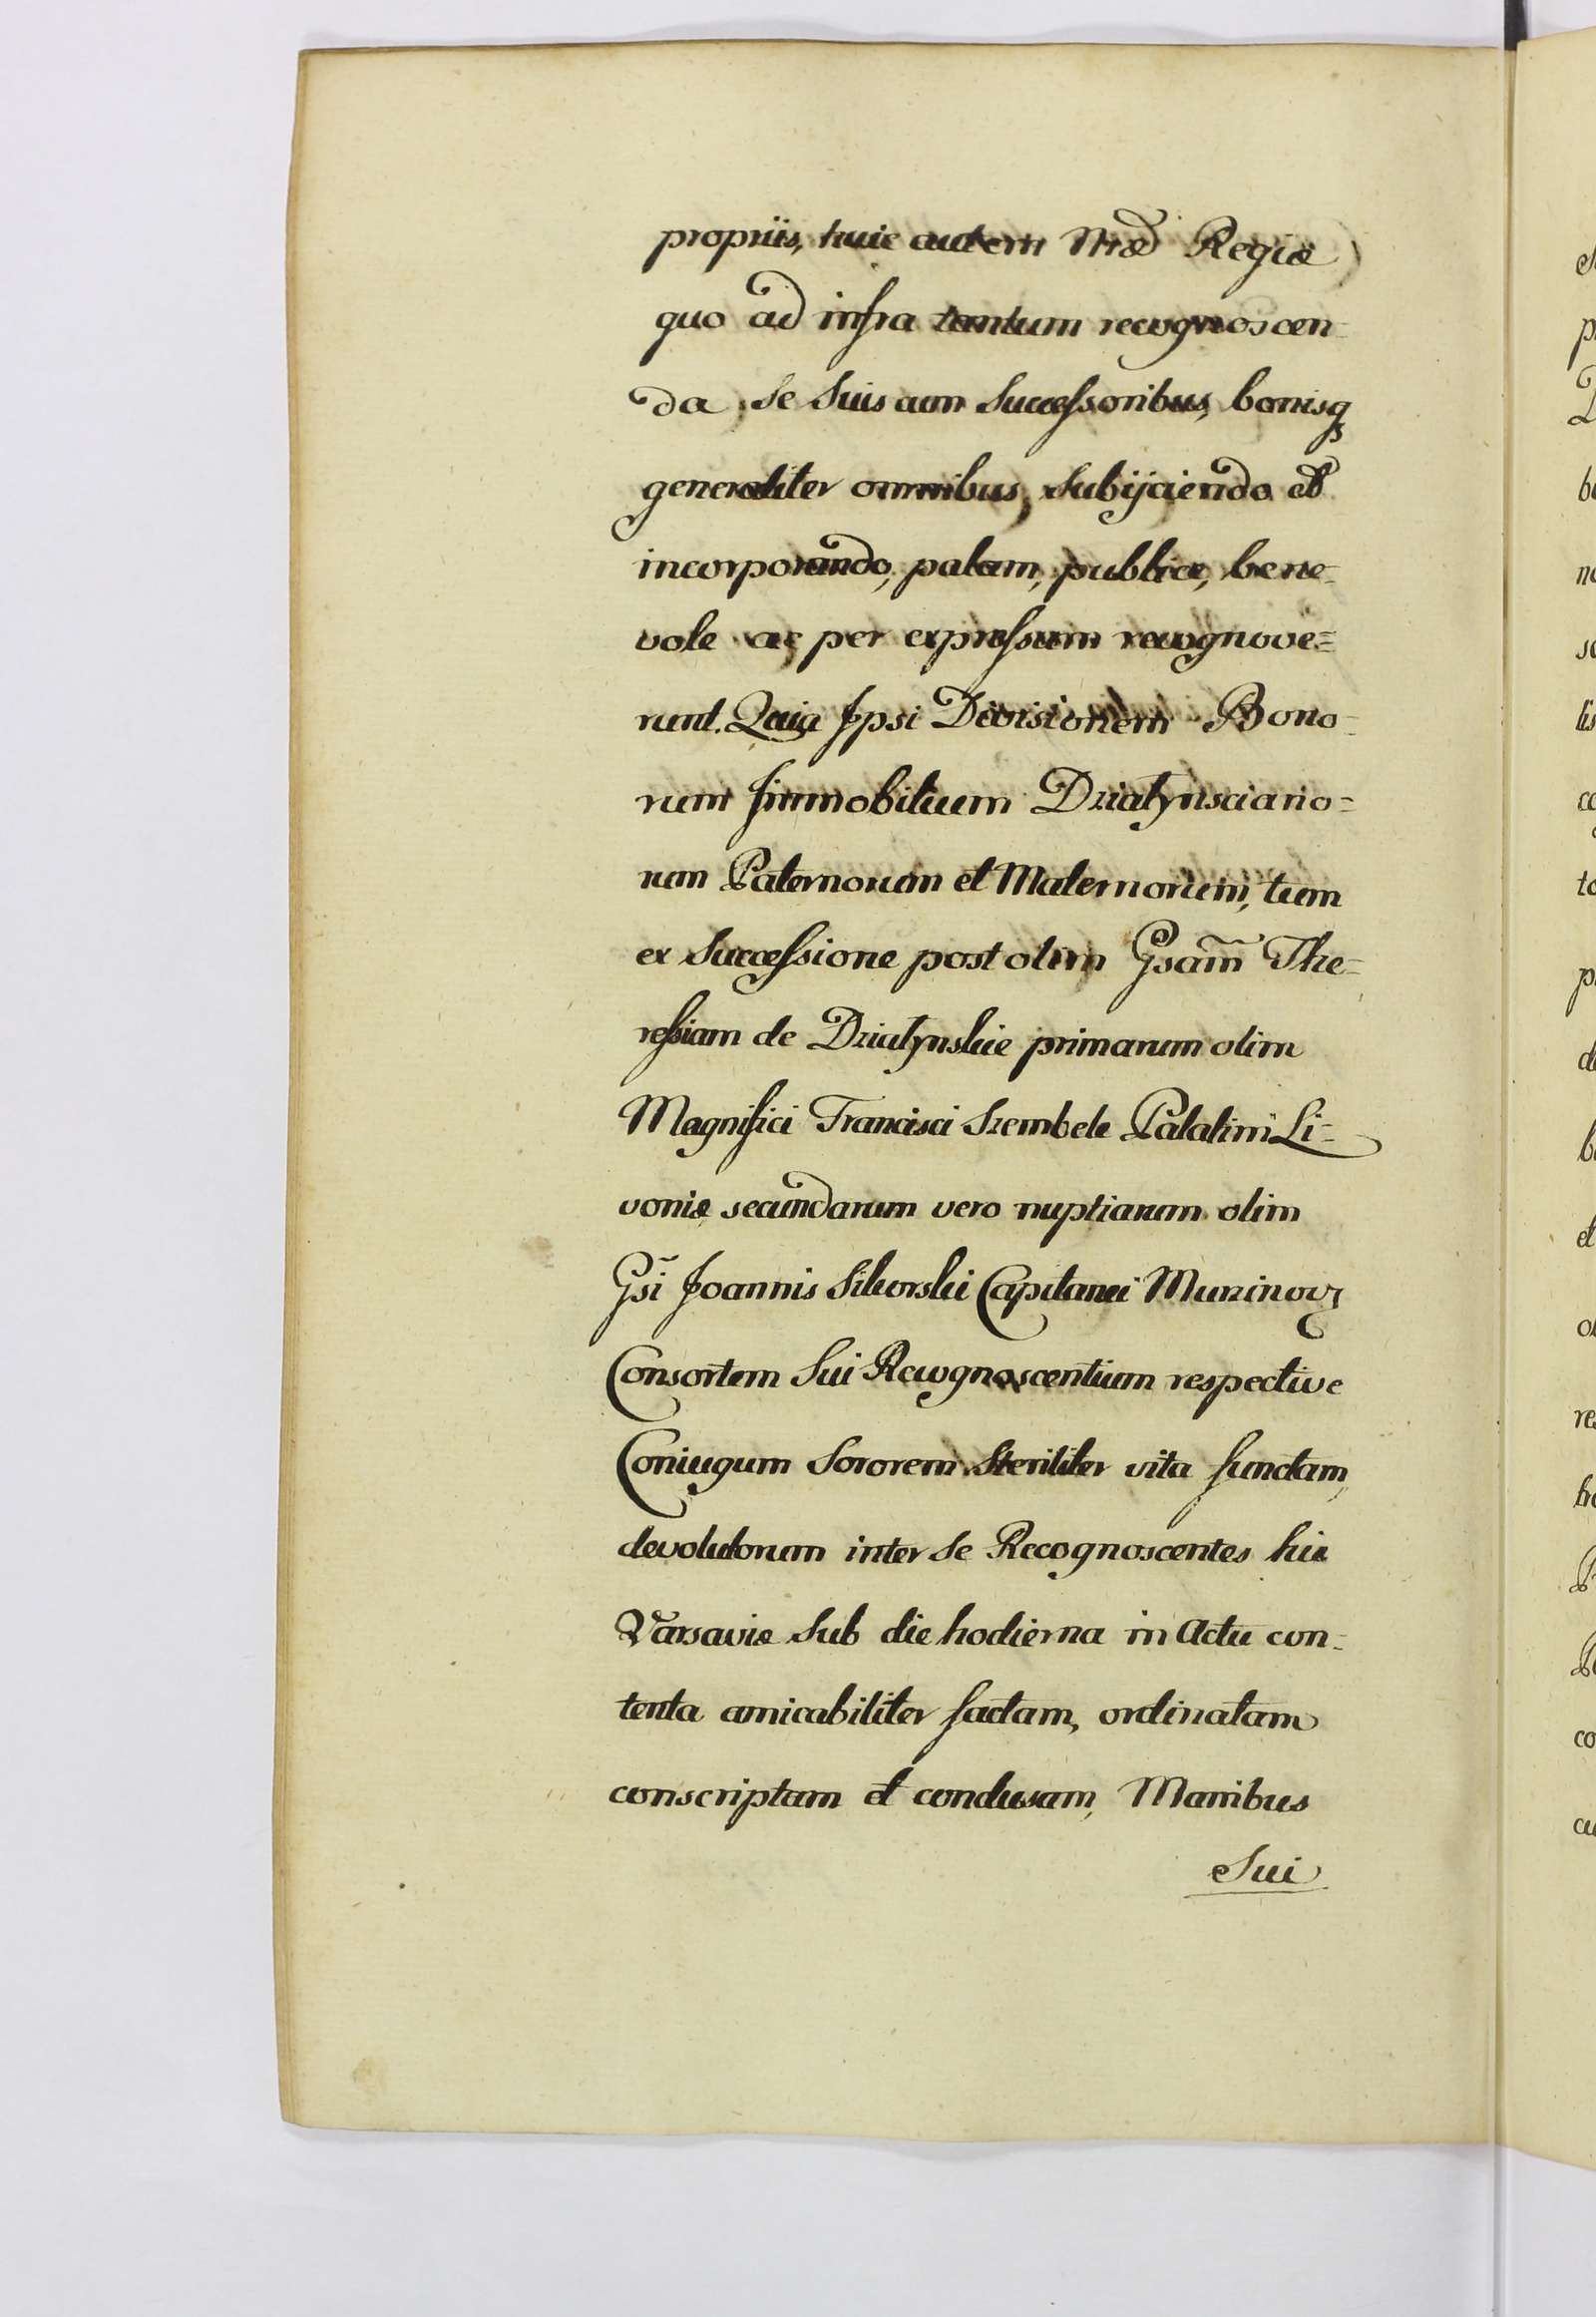 propriis, huic autem Nræ Regiæ
quo ad infra tantum recognoscen-
da, Se Suis cum Successoribus, bonisq
generaliter omnibus, Subijciendo et
incorporando, palam, publice, bene-
vole ac per expressum recognove=
runt. Quia Ipsi Divisionem Bono-
rum Immobilium Działynsciano=
rum Paternorum et Maternorum, tum
ex Successione post olim Gsam̃ The=
ressiam de Działynskie primarum olim
Magnifici Francisci Szembek Palatini Li=
voniæ secundarum vero nuptiarum olim
Gs̃i Joannis Sikorski Capitanei Murzinov
Consortem Sui Recognoscentium respective
Coniugum Sororem Steriliter vita functam,
devolutorum inter Se Recognoscentes hic
Varsaviæ Sub die hodierna in Actu con-
tenta amicabiliter factam, ordinatam
conscriptam et conclusam, Manibus
Sui